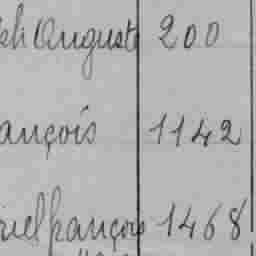 ph Auguste 200
ançois 1142
riel françois 1468